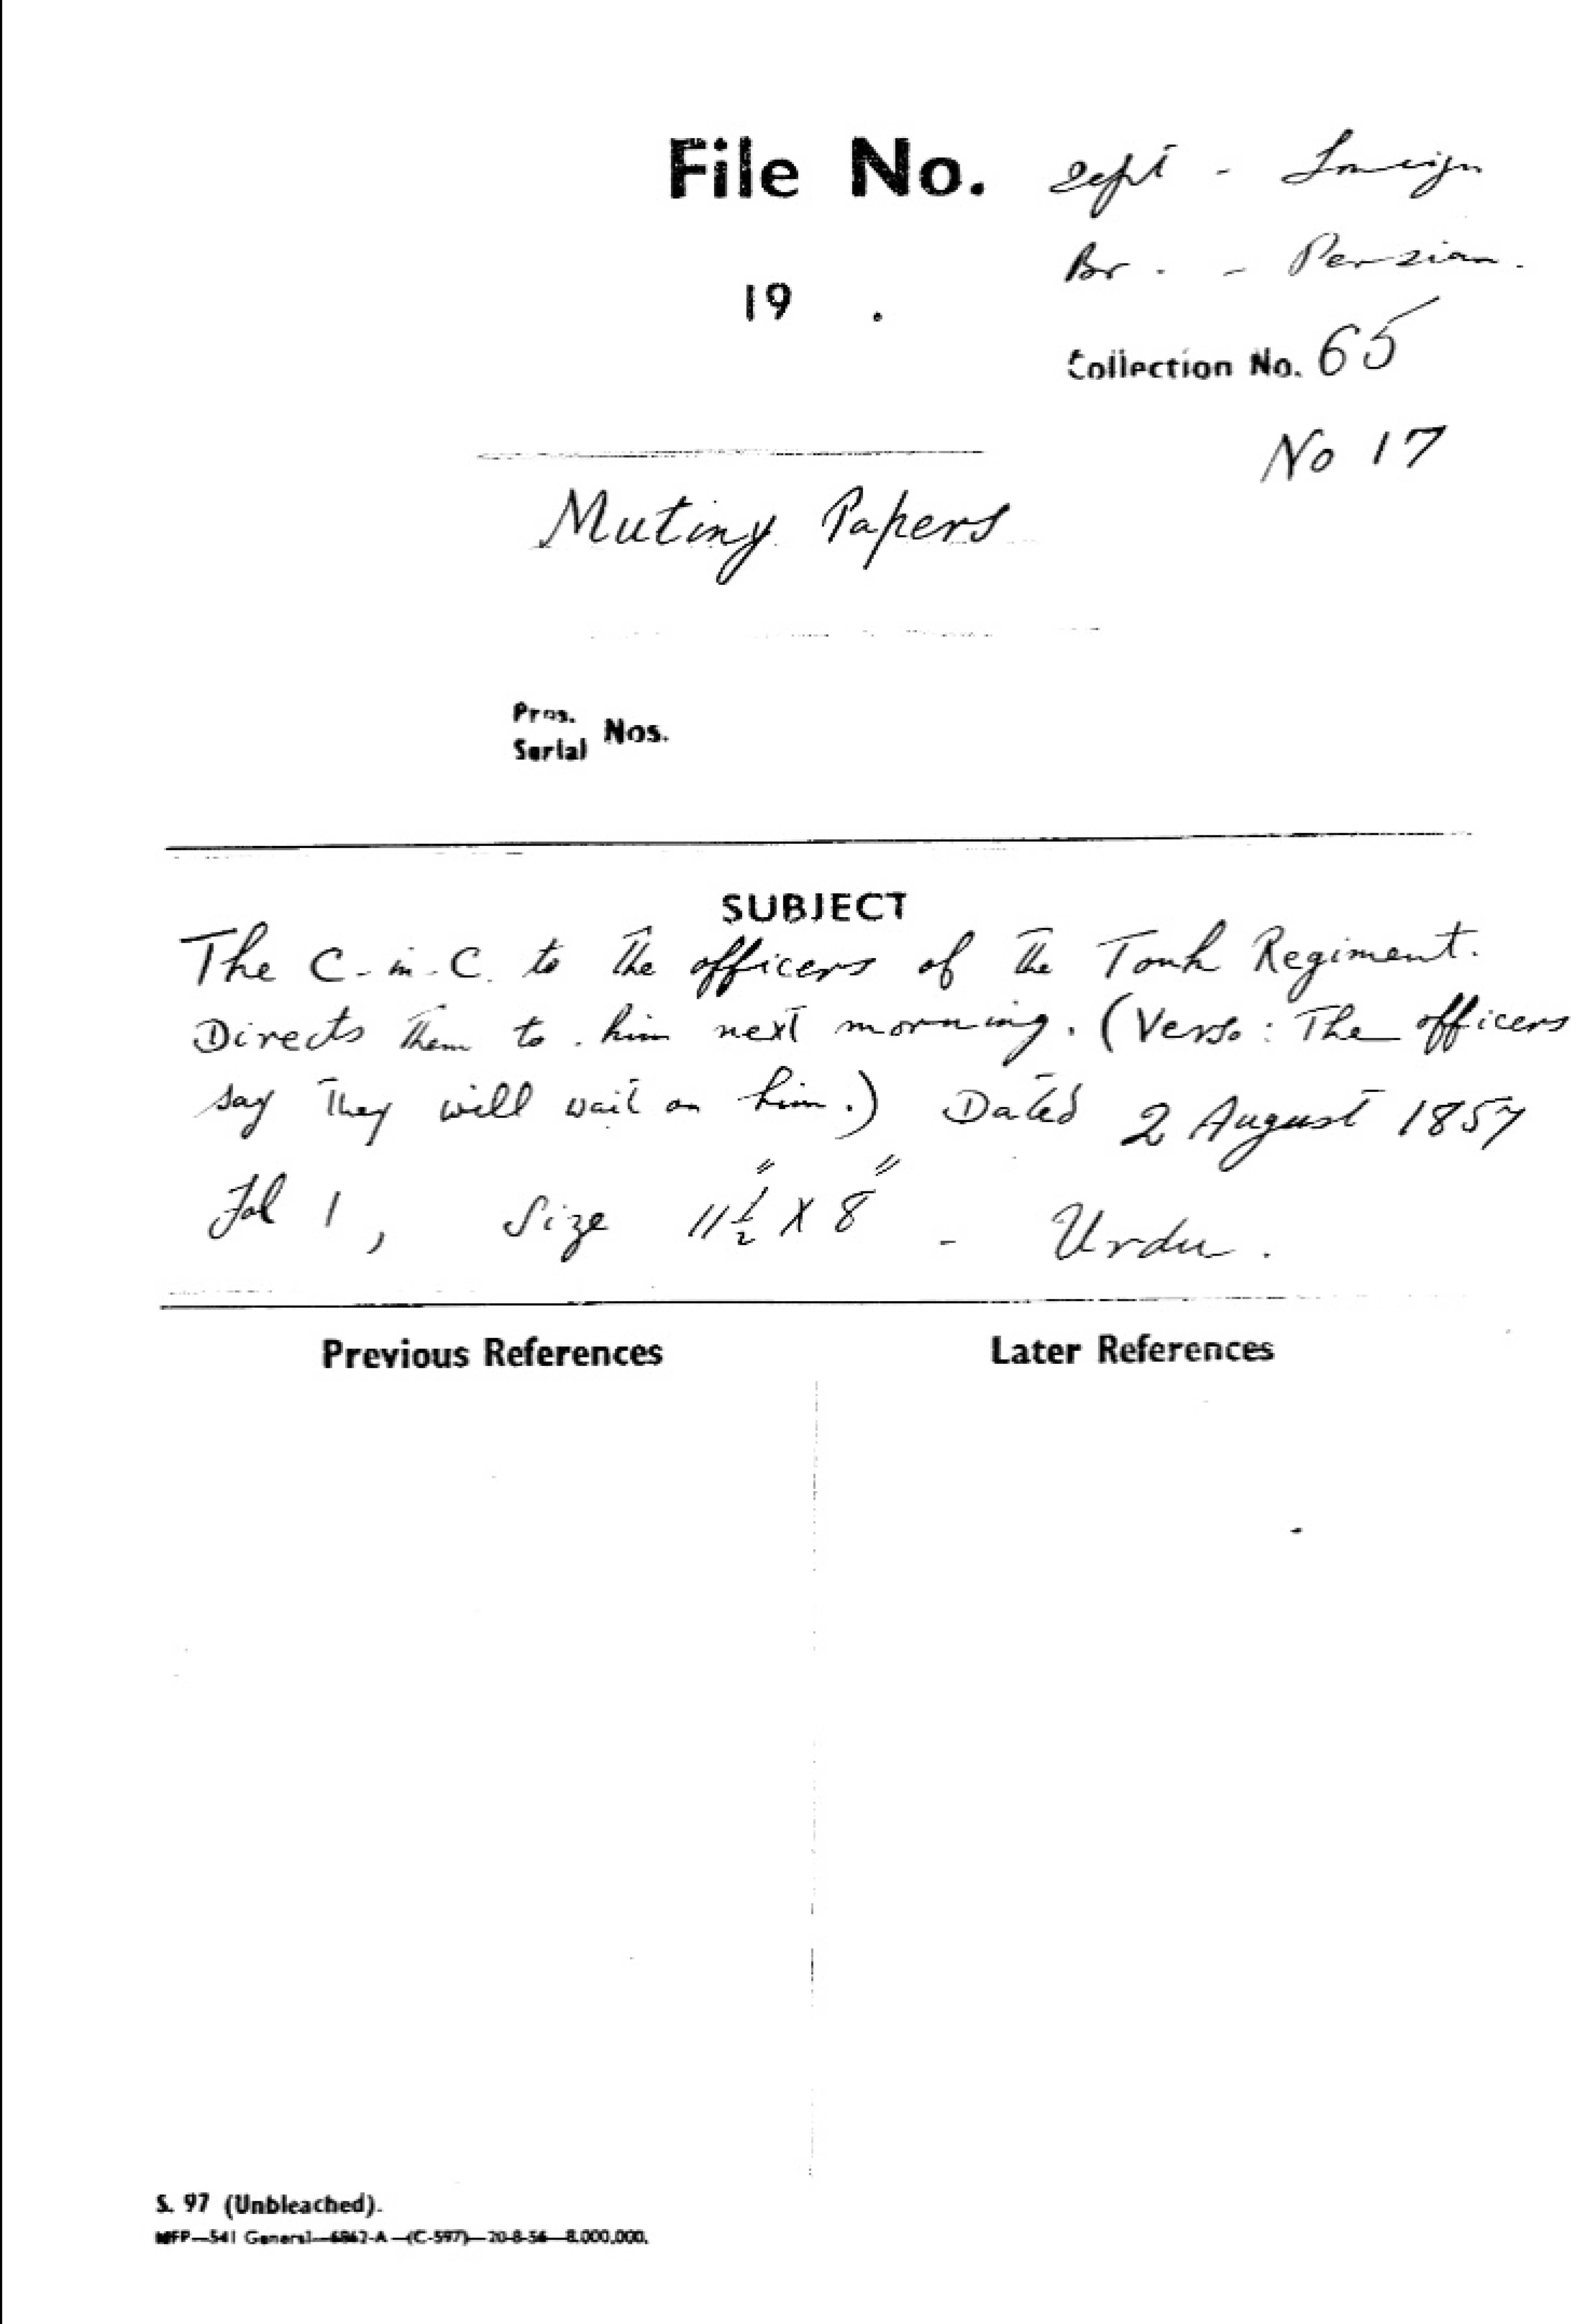 File No. Dept - Foreign
Br. - Persian.
19 .
Collection No. 65
No 17
Mutiny Papers
Pros.
Serial Nos.
SUBJECT
The C-in-C. to the officers of the Tonk Regiment.
Directs them to . him next morning. (Verso: The officers
say they will wait on him.) Dated 2 August 1857
Fol 1, Size 11½" X 8" - Urdu.
Previous References
Later References
S. 97 (Unbleached).
MFP—541 General—6862-A—(C-597)—20-8-56—8,000,000.